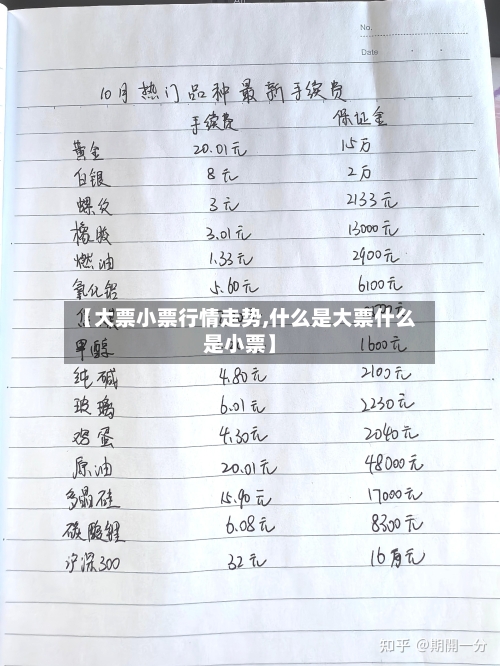 No.
Date
10月热门品种最新手续费
手续费 保证金
黄金 20.01元 15万
白银 8元 2万
螺纹 3元 2133元
橡胶 3.01元 13000元
燃油 1.33元 2900元
氧化铝 5.60元 6100元
【大票小票行情走势,什么是大票什么
是小票】
甲醇 1600元
纯碱 4.80元 2100元
玻璃 6.01元 2230元
鸡蛋 4.30元 2040元
原油 20.01元 48000元
多晶硅 15.90元 17000元
碳酸锂 6.08元 8300元
沪深300 32元 16万元
知乎 @期開一分